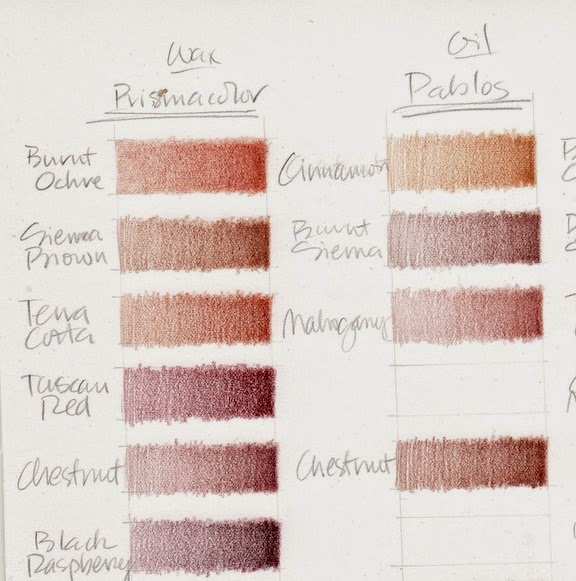 Wax
Oil
Prismacolor
Pablos
Burnt
Ochre
Cinnamon
Sienna
Brown
Burnt
Sienna
Terra
Cotta
Mahogany
Tuscan
Red
Chestnut
Chestnut
Black
Raspberry